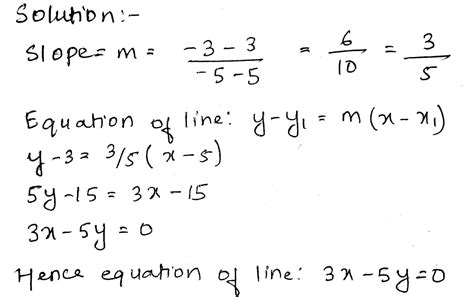 Solution:-
Slope = m = (-3-3)/(-5-5) = 6/10 = 3/5
Equation of line: y-y₁ = m(x-x₁)
y-3 = 3/5(x-5)
5y-15 = 3x-15
3x-5y = 0
Hence equation of line: 3x-5y=0